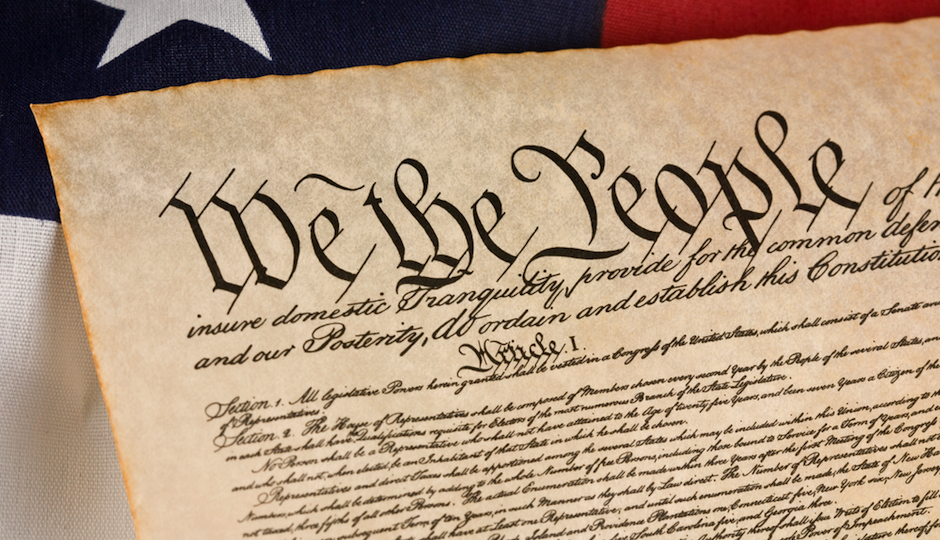 We the People of
insure domestic Tranquility, provide for the common defen
and our Posterity, do ordain and establish this Constitutio
Article. I.
Section. 1. All legislative Powers herein granted shall be vested in a Congress of the United States, which shall consist of a Senate and
of Representatives.
Section. 2. The House of Representatives shall be composed of Members chosen every second Year by the People of the several States, an
in each State shall have Qualifications requisite for Electors of the most numerous Branch of the State Legislature.
No Person shall be a Representative who shall not have attained to the Age of twenty five Years, and been seven Years a Citizen of the
and who shall not, when elected, be an Inhabitant of that State in which he shall be chosen.
Representatives and direct Taxes shall be apportioned among the several States which may be included within this Union, according to the
Numbers, which shall be determined by adding to the whole Number of free Persons, including those bound to Service for a Term of Years, and
not taxed, three fifths of all other Persons. The actual Enumeration shall be made within three Years after the first Meeting of the Congress
subsequent Term of ten Years, in such Manner as they shall by Law direct. The Number of Representatives shall not
shall have at Least one Representative; and until such enumeration shall be made, the State of New Ha
Island and Providence Plantations one, Connecticut five, New York six, New Jersey
South Carolina five, and Georgia three.
Authority thereof shall issue Writs of Election to fill
Power of Impeachment.